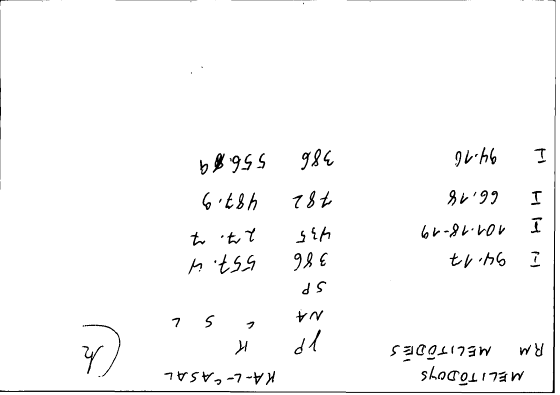 MELITŌDOYS KA-L-CASAL
RM MELITŌDĒS γP K
NA C S L
SP
I 94.17 386 557.4
I 101.18-19 435 27.7
I 66.18 782 487.9
I 94.16 386 556.9